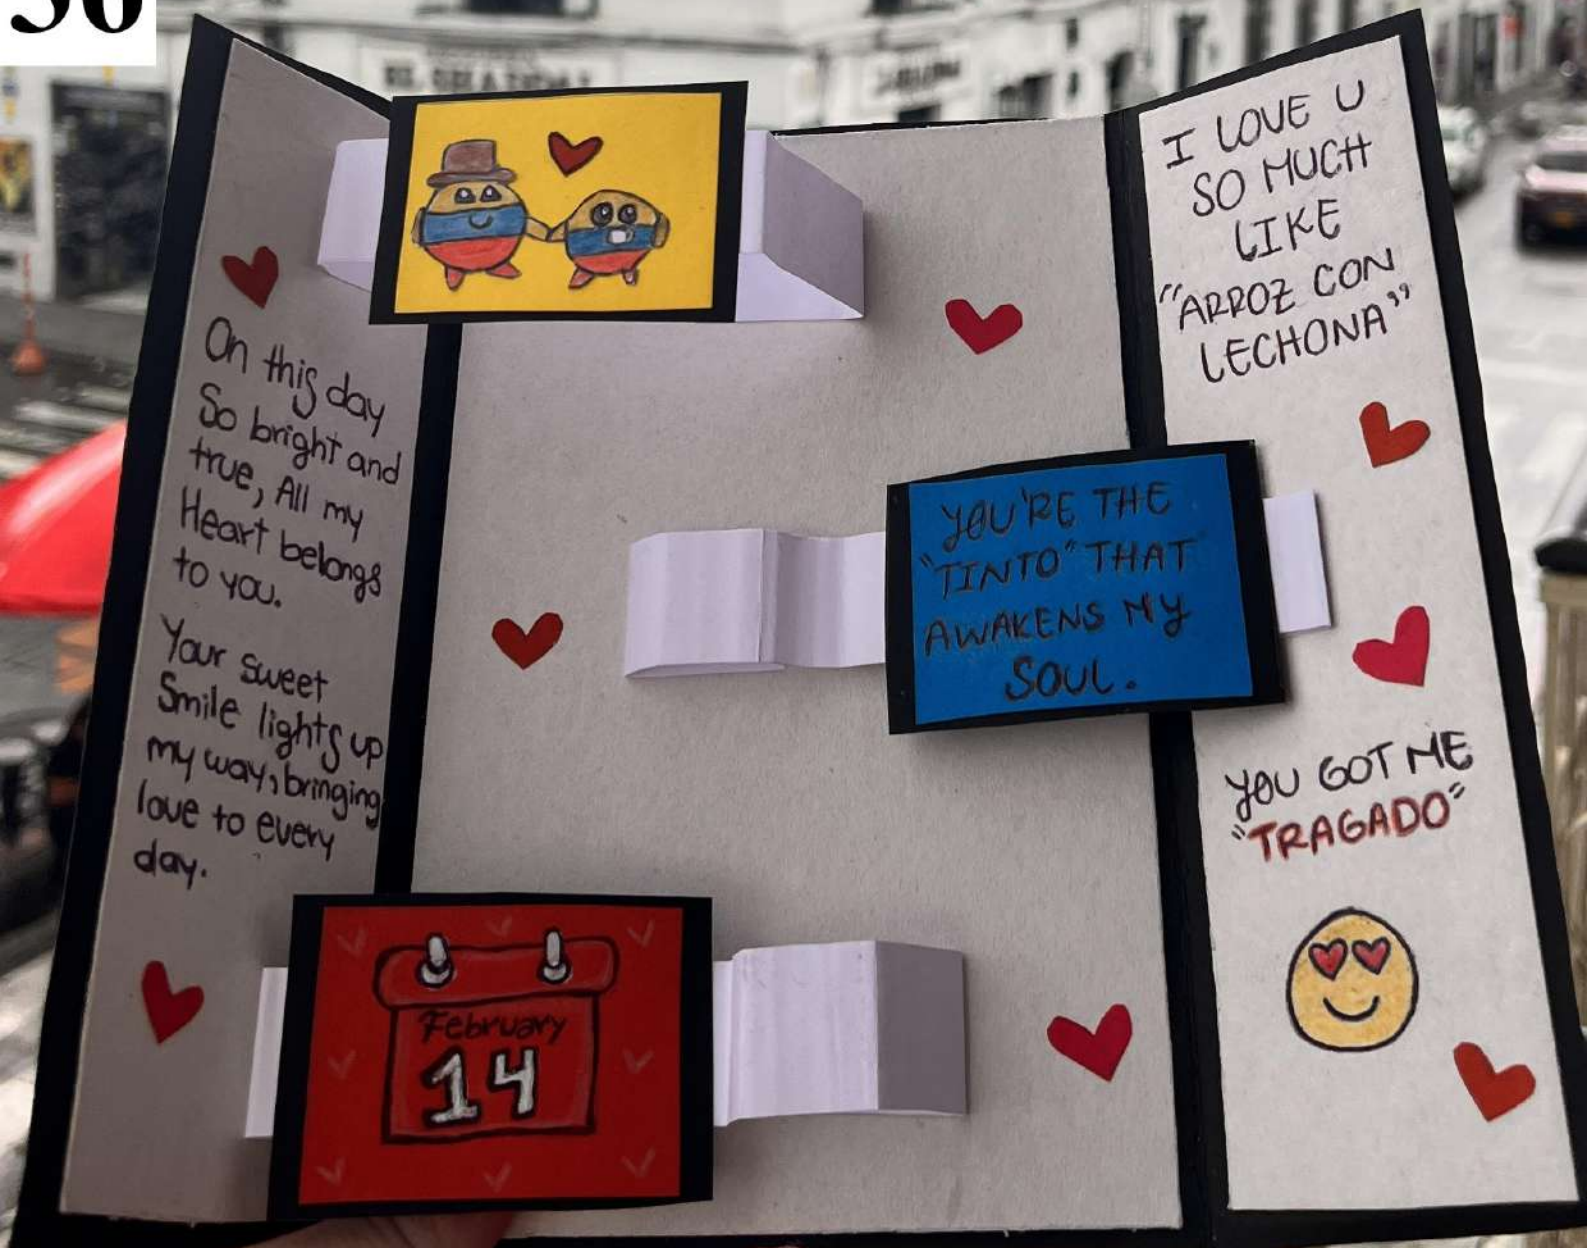 On this day
So bright and
true, All my
Heart belongs
to you.
Your sweet
Smile lights up
my way, bringing
love to every
day.
February
14
YOU'RE THE
"TINTO" THAT
AWAKENS MY
SOUL.
I LOVE U
SO MUCH
LIKE
"ARROZ CON
LECHONA"
YOU GOT ME
"TRAGADO"